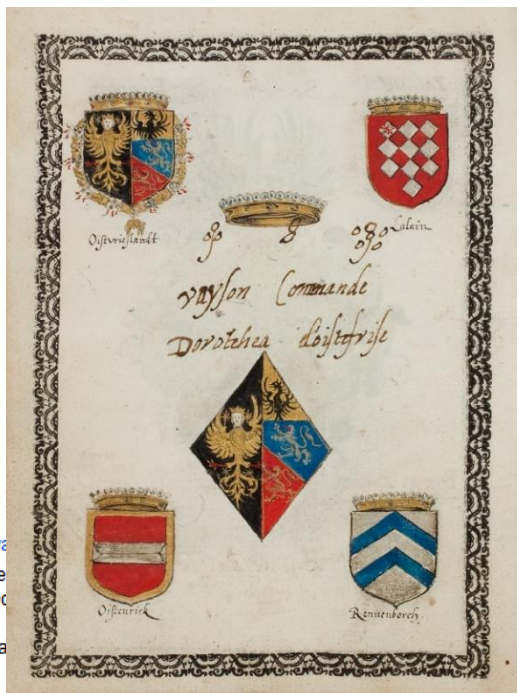 Oistvrieslandt
Lalain
vayson Commande
Dorothea doistfrise
Oistenrick
Rennenborch.